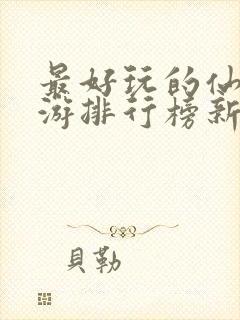 最好玩的仙
游排行榜新
貝勒